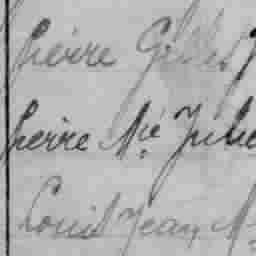 Pierre Gilles J
Pierre Mie Julie
Louis Jean M